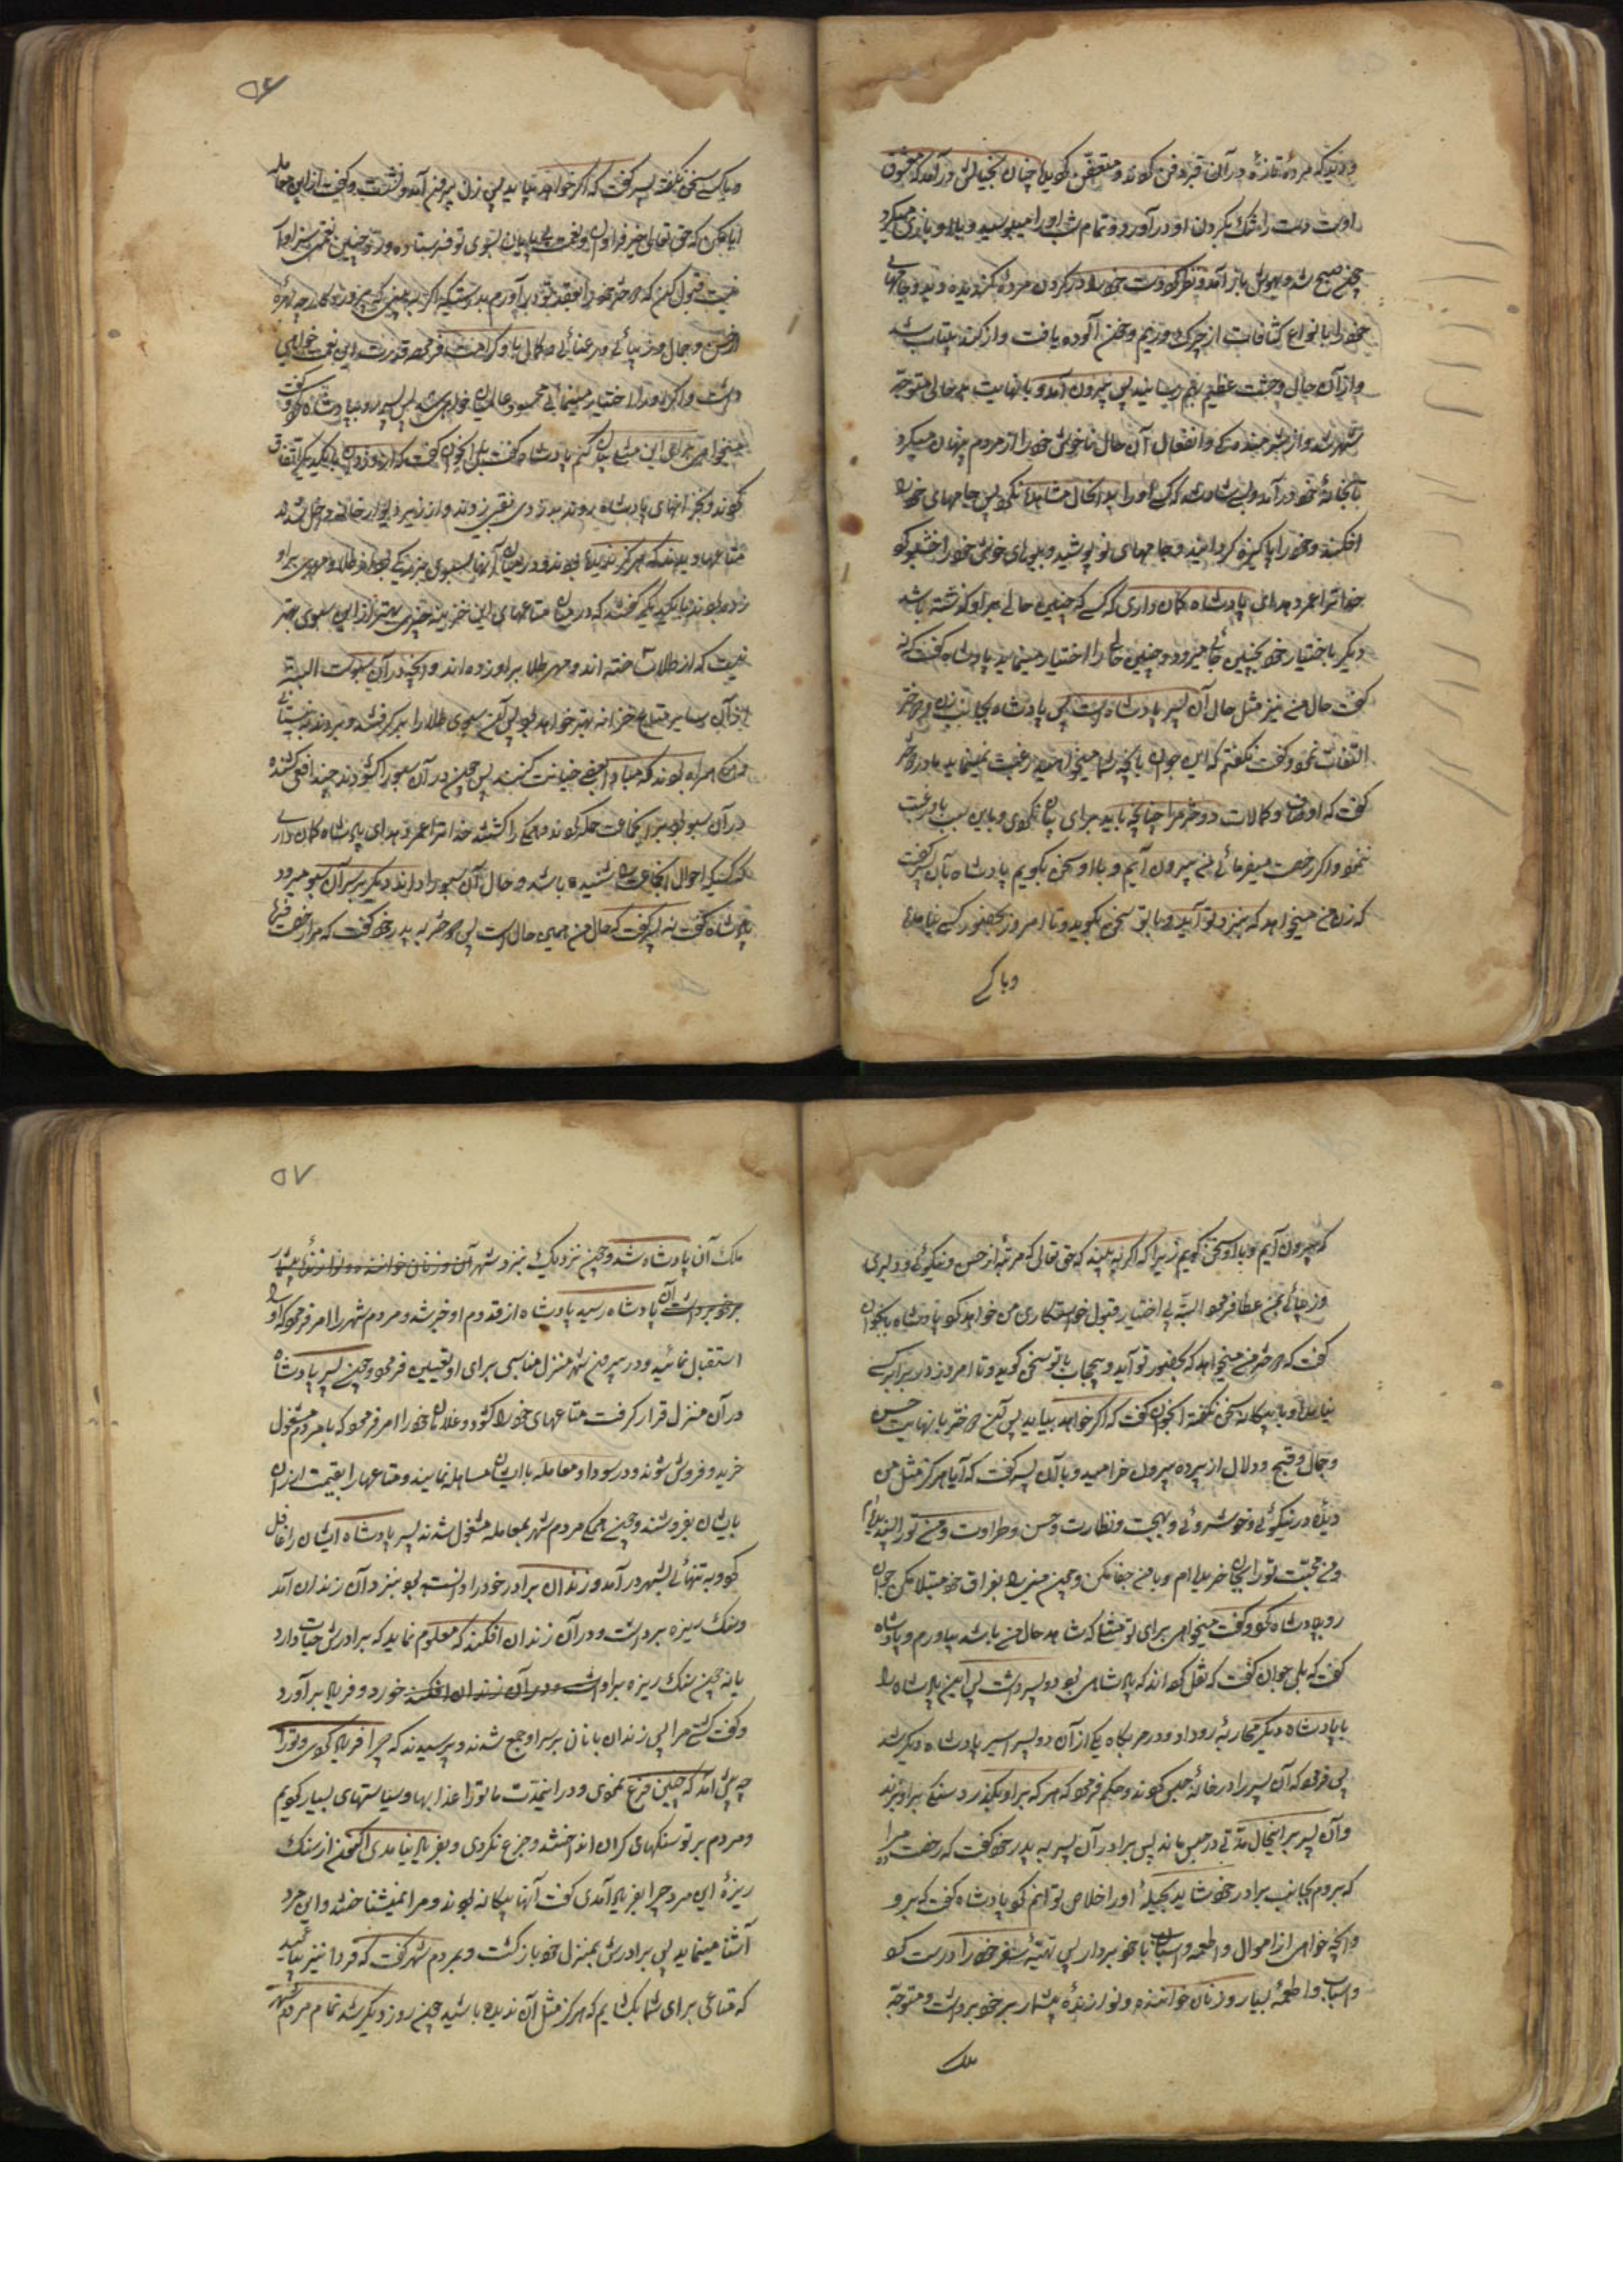 و دید که مردهٔ تازهٔ در آن قبر دفن کرده و متعفن گردیده چنان بخیالش درآمد که معشوق
اوست دست را تنگ بگردن او درآورد و تمام شب او را میبوسید و با او بازی میکرد
چون صبح شد و بهوش باز آمد و نظر کرد دست خود را در گردن مردهٔ گندیده دید و جامهای
خود را بانواع کثافات از چرک و ریم و خون آلوده یافت و از گند بیتاب شد
و از آن حال وحشت عظیم بهم رسانید پس بیرون آمد و با نهایت بدحالی متوجه
شهر شد و از شرمندگی و انفعال آن حال ناخوش خود را از مردم پنهان میکرد
تا بخانهٔ خود درآمد و بسی شاد شد که کسی او را بدانحال مشاهده نکرد پس جامهای خود را
افکند و خود را پاکیزه گردانید و جامهای نو پوشید و ببوی خوش خود را خشبو کرد
خدا ترا عمر دهد ای پادشاه گمان داری که کسی که چنین حالی بر او گذشته باشد
دیگر باختیار خود بچنین جائی میرود و چنین حالی را اختیار مینماید پادشاه گفت که نه
گفت حال من نیز مثل حال آن پسر پادشاه است پس پادشاه بجانب زن و دختر
التفات نمود و گفت نگفتم که این جوان بآنچه شما میخواهید رغبت نمینماید مادر دختر
گفت که اوصاف و کمالات دختر مرا چنانچه باید برای ایشان نگوئی و باین سبب باو رغبت
ننمود و اگر رخصت میفرمائی من بیرون آیم و با او سخن بگویم پادشاه بآن پسر گفت
که زن من میخواهد که بنزد تو آید و با تو سخن بگوید و تا امروز بحضور کسی نیامده
و با کسی
۵۶
و با کسی سخن نگفته پسر گفت که اگر خواهد بیاید پس زن بیرون آمد و نشست و گفت از این معامله
ابا مکن که حق تعالی خیر فراوان و نعمت بی پایان بسوی تو فرستاده و رد چنین نعمتی سزاوار
نیست قبول کن که دختر خود را بعقد تو درآورم بدرستیکه اگر به بینی که پروردگار چه بهرهٔ
از حسن و جمال و زیبائی و رعنائی و کمال باو کرامت فرموده قدر این نعمت خواهی
دانست و اگر او را اختیار مینمائی محسود عالمیان خواهی شد پس پسر رو بپادشاه کرد و گفت
میخواهی برای این مثلی بیان کنم پادشاه گفت بلی آنجوان گفت که دزدان با یکدیگر اتفاق
کردند و بخزانهای پادشاه بروند بدزدی نقبی زدند و از زیر دیوار خانه داخل شدند
متاعها دیدند که هرگز ندیده بودند و در میان آنها سبوی بزرگی بود از طلا و مهری بر او
زده بودند و با یکدیگر گفتند که در میان متاعهای این خزینه چیزی بهتر از این سبوی مهر
نیست که از طلا ساخته اند و مهر طلا بر او زده اند و آنچه در آن سبو است البته
از آن سایر متاع خزانه بهتر خواهد بود پس آن سبوی طلا را برگرفتند و بردند به نیستانی
و همگی همراه بودند که مبادا بعضی خیانت کنند پس چون در آن سبو را گشودند چند افعی کشنده
در آن سبو بود بر آنجماعت حمله کردند و همگی را کشتند خدا ترا عمر دهد ای پادشاه گمان داری
که کسیکه احوال آنجماعت را شنیده باشد و حال آن سبو را داند دیگر بر سر آن سبو میرود
پادشاه گفت نه پسر گفت که حال من همین حال است پس دختر به پدر خود گفت که مرا رخصت فرمای
که بیرون آیم و با او سخن گویم زیرا که اگر به بیند که حق تعالی که مرتبهٔ از حسن و نیکوئی و دلبری
و زیبائی بمن عطا فرموده البته بی اختیار قبول خواستگاری من خواهد کرد پادشاه بآنجوان
گفت که دختر من میخواهد که بحضور تو آید و بیحجاب با تو سخن گوید و تا امروز در برابر کسی
نیامده و با بیگانه سخن نگفته آنجوان گفت که اگر خواهد بیاید پس آن دختر با نهایت حسن
و جمال و قبح و دلال از پرده بیرون خرامید و بآن پسر گفت که آیا هرگز مثل من
دیدهٔ در نیکوئی و خوشروئی و بهجت و نظارت و حسن و طراوت و من تو را پسندیده ام
و من محبت تو را بجان خریده ام و با من جفا مکن و چون منی را بفراق خود مبتلا مکن جوان
رو بپادشاه کرد و گفت میخواهی برای تو مثلی که شاهد حال من باشد بیاورم و پادشاه
گفت که بلی جوان گفت که نقل کرده اند که پادشاهی بود دو پسر داشت پس این پادشاه را
با پادشاه دیگر محاربهٔ رو داد و در حربگاه یکی از آن دو پسر اسیر پادشاه دیگر شد
پس فرمود که آن پسر را در خانهٔ حبس کردند و حکم فرمود که هر که بر او بگذرد سنگی بر او بزند
و آن پسر بر اینحال مدتی در حبس ماند پس برادر آن پسر به پدر خود گفت که رخصت ده مرا
که بروم بجانب برادر خود شاید بحیلهٔ او را خلاص توانم کرد پادشاه گفت که برو
و آنچه خواهی از اموال و اطعمه و اسبان با خود بردار پس تهیهٔ سفر خود را درست کرد
و اسباب و اطعمهٔ بسیار و زنان خواننده و نوازندهٔ بیشمار بر خود برداشت و متوجه
ملک
۵۷
ملک آن پادشاه شد و چون نزدیک بنزد شهر آن و زنان خواننده و نوازندهٔ بیشمار
برخود برداشت آن پادشاه رسید پادشاه از قدوم او خبر شد و مردم شهر را امر فرمود که او را
استقبال نمائید و در بیرون شهر منزل مناسبی برای او تعیین فرمود و چون پسر پادشاه
در آن منزل قرار گرفت متاعهای خود را گشود و غلامان خود را امر فرمود که با مردم مشغول
خرید و فروش شوند و در سودا و معامله با ایشان مساهله نمایند و متاعها را بقیمت ارزان
بایشان بفروشند و چون همگی مردم شهر بمعامله مشغول شدند پسر پادشاه ایشان را غافل
کرد و به تنهائی بشهر درآمد و زندان برادر خود را دانسته بود بنزد آن زندان آمد
و سنگ ریزه برداشت و در آن زندان افکند که معلوم نماید که برادرش حیات دارد
یا نه چون سنگ ریزه بر او داشت و در آن زندان افکند خورد و فریاد برآورد
و گفت کشتی مرا پس زندان بانان بر سر او جمع شدند و پرسیدند که چرا فریاد کردی و تو را
چه پیش آمد که چنین فزع نمودی و در اینمدت ما تو را عذابها و سیاستهای بسیار کردیم
و مردم بر تو سنگهای گران انداختند و جزع نکردی و بفریاد نیامدی اکنون از سنگ
ریزهٔ این مرد چرا بفریاد آمدی گفت آنها بیگانه بودند و مرا نمیشناختند و این مرد
آشنا مینماید پس برادرش بمنزل خود بازگشت و بمردم شهر گفت که فردا نیز بیائید
که متاعی برای شما بگشایم که هرگز مثل آن ندیده باشید چون روز دیگر شد تمام مردم شهر